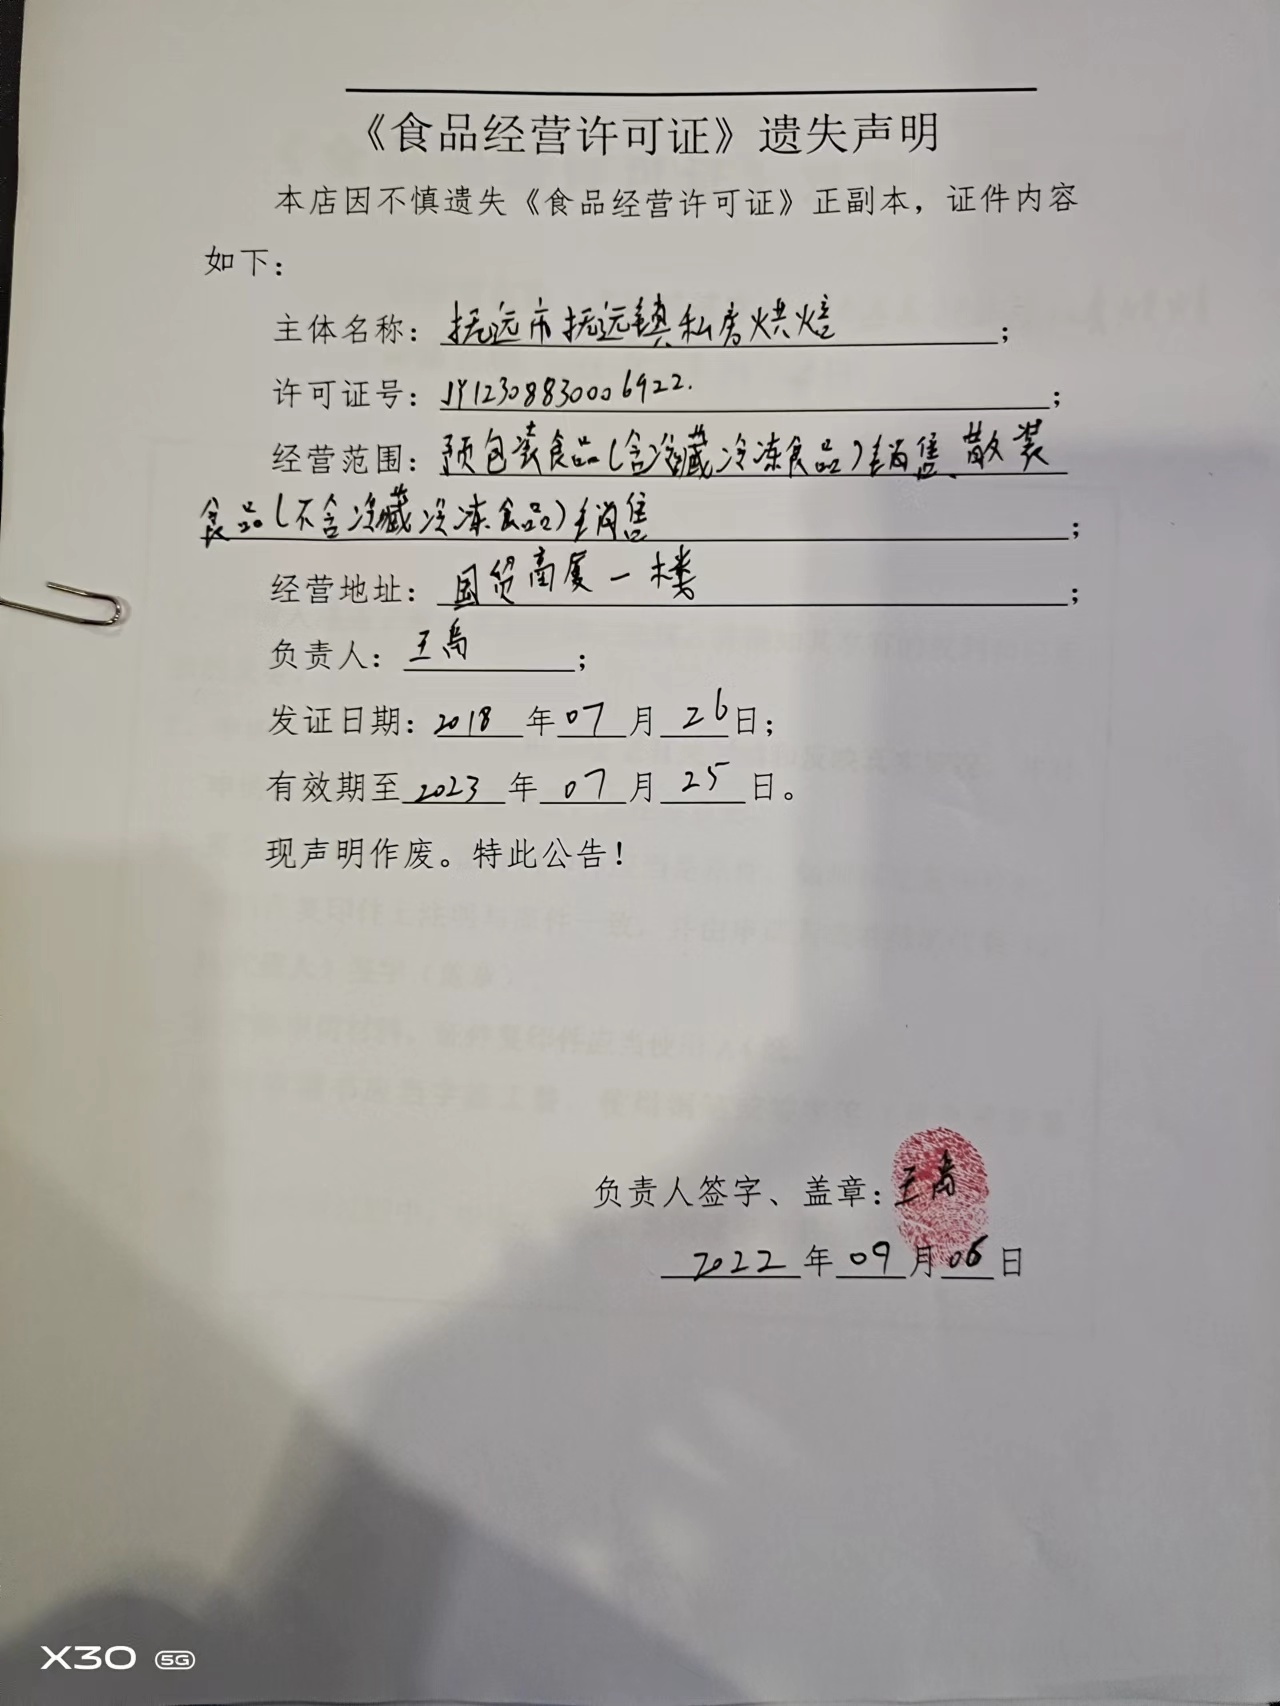 《食品经营许可证》遗失声明
本店因不慎遗失《食品经营许可证》正副本，证件内容
如下：
主体名称：抚远市抚远镇私房烘焙；
许可证号：JY12308830006922.；
经营范围：预包装食品(含冷藏冷冻食品)销售、散装
食品(不含冷藏冷冻食品)销售；
经营地址：国贸商厦一楼；
负责人：王禹；
发证日期：2018年07月26日；
有效期至2023年07月25日。
现声明作废。特此公告！
负责人签字、盖章：王禹
2022年09月06日
X30 5G